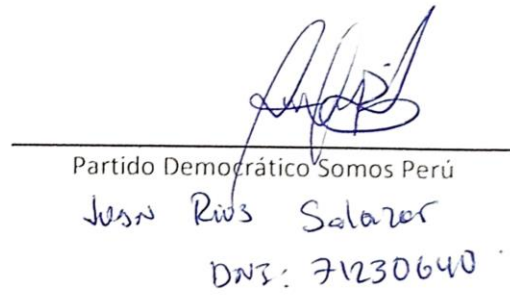 Partido Democrático Somos Perú
Juan Rios Salazar
DNI: 71230640